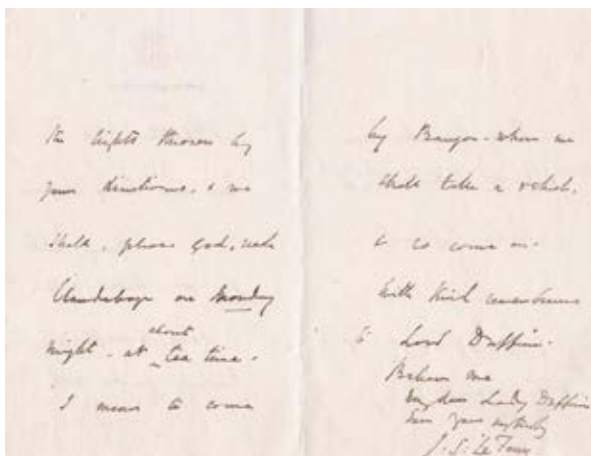 the lights thrown by
your directions, & we
shall, please God, reach
Clandeboye on Monday
night - at about tea time -
I mean to come
by Bangor - where we
shall take a vehicle,
& so come on -
With kind remembrances
to Lord Dufferin -
Believe me
my dear Lady Dufferin
yours
J. S. Le Fanu